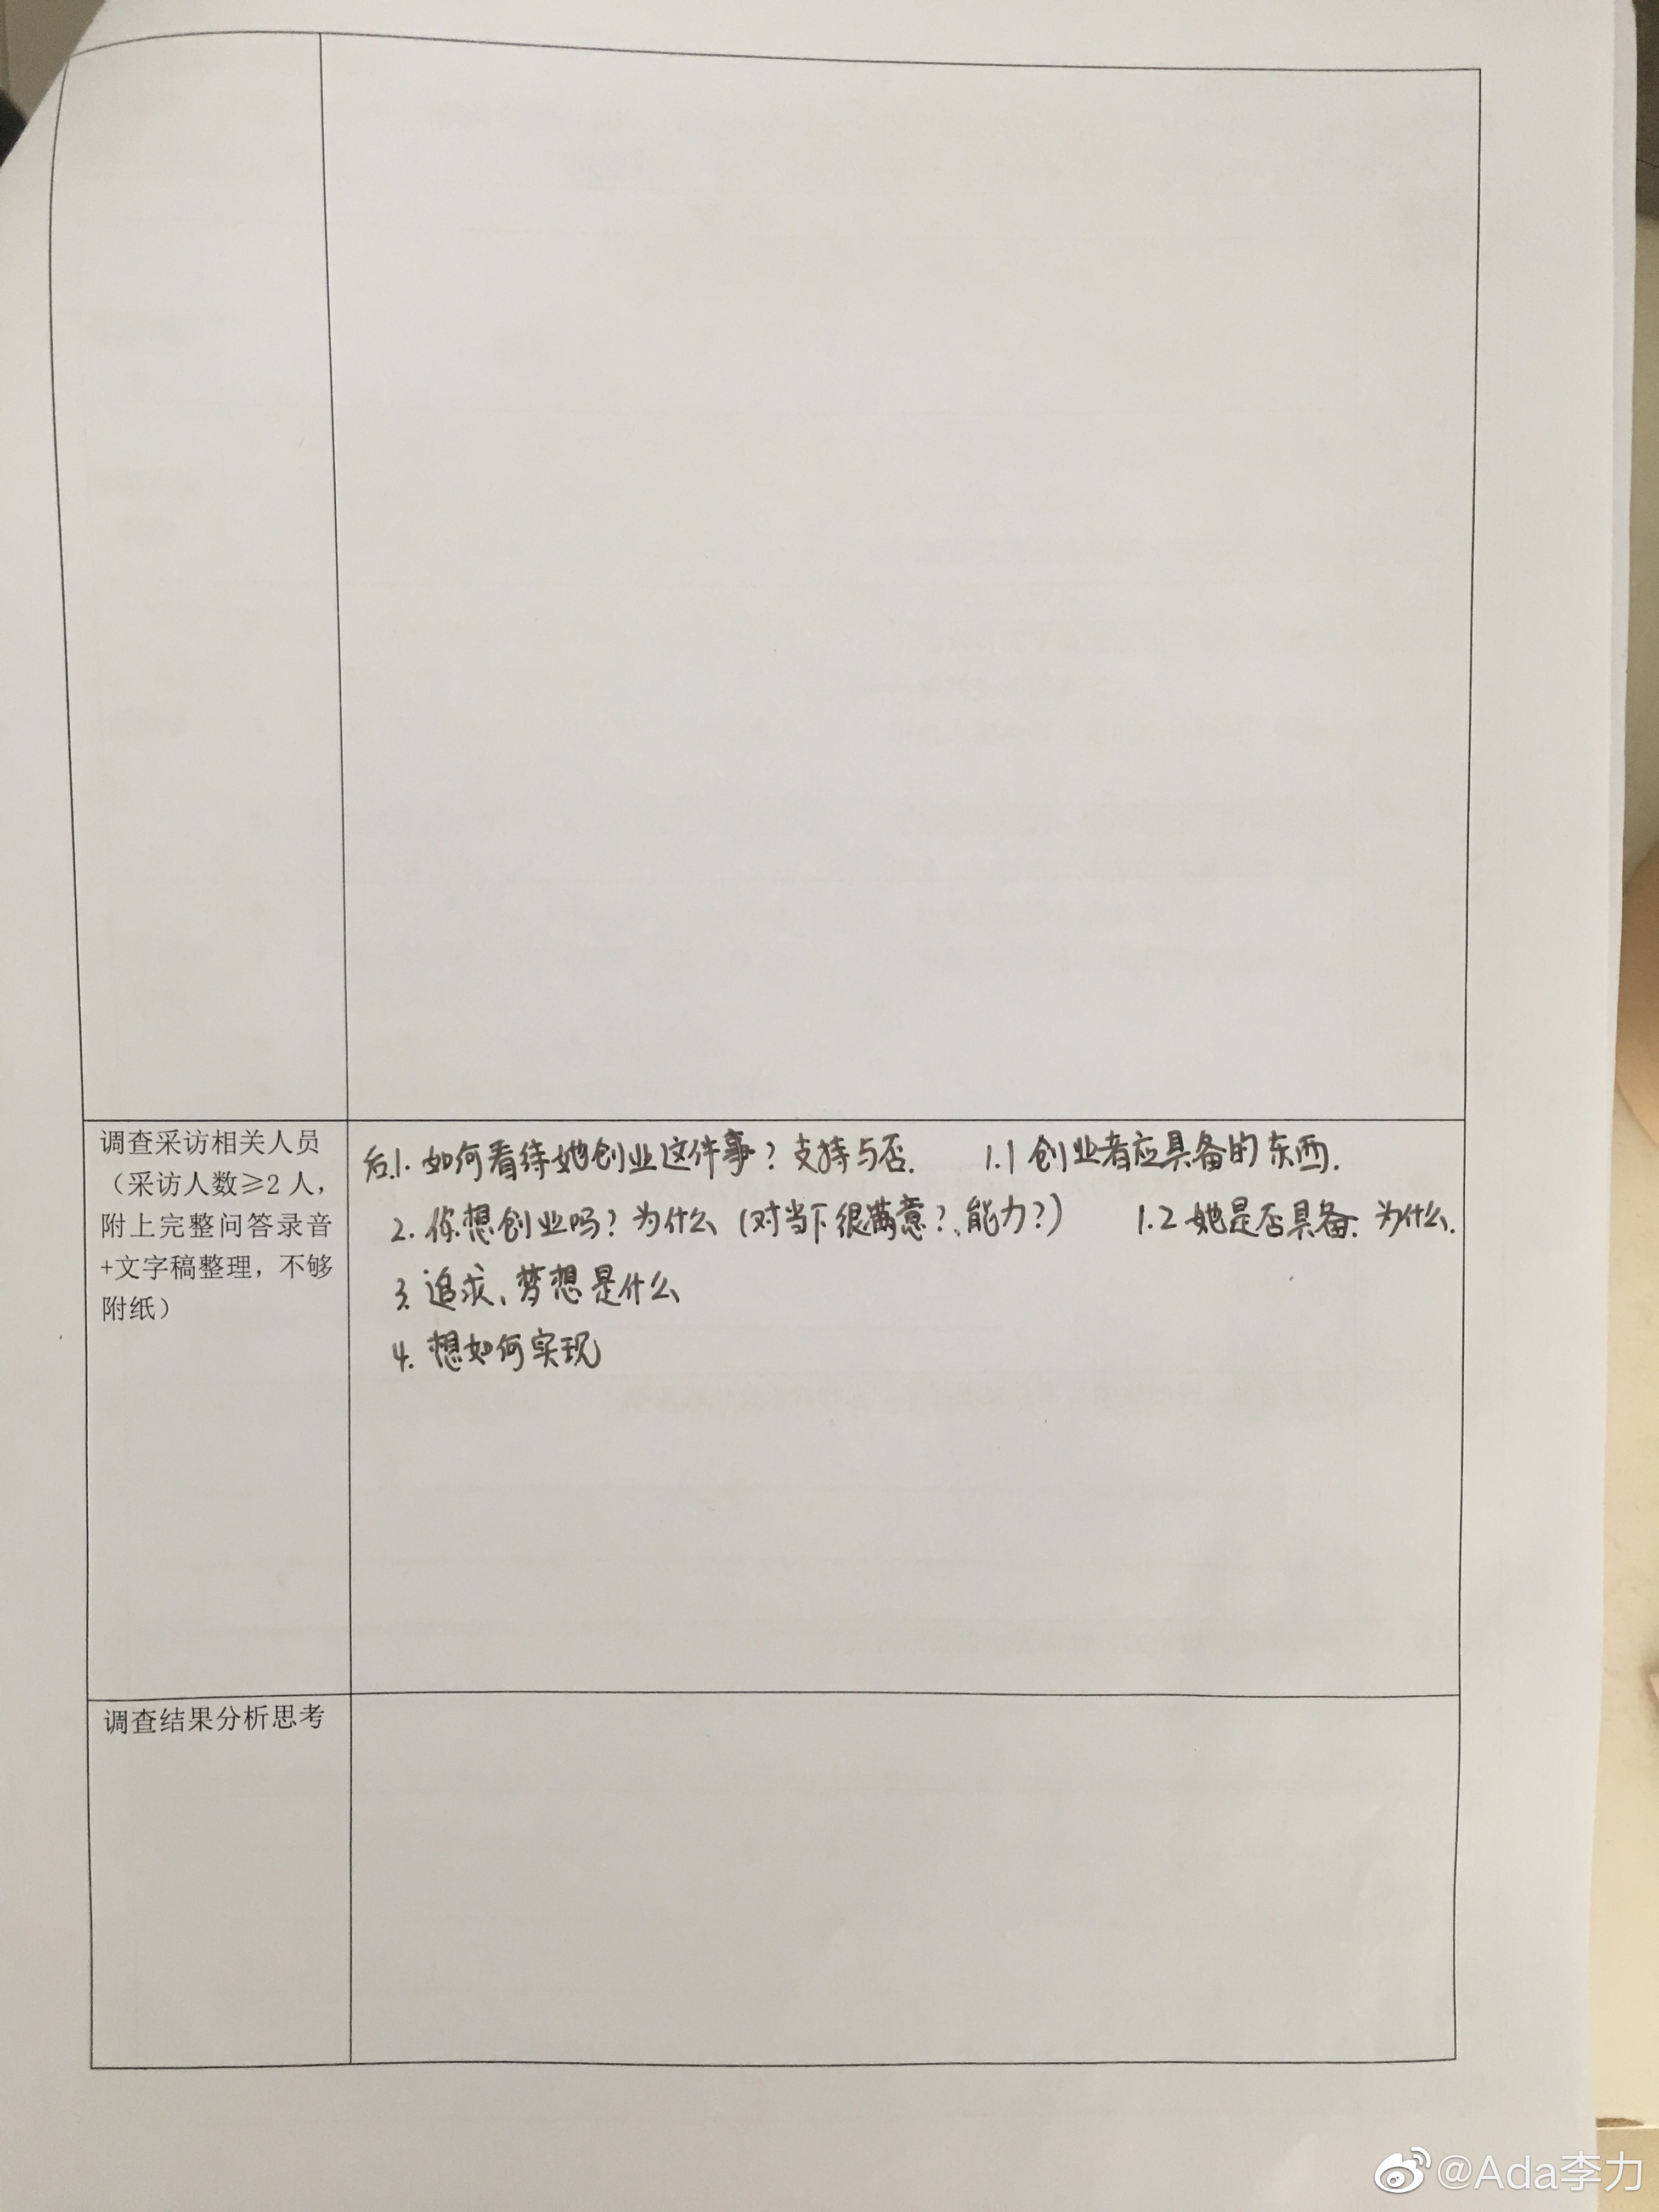 调查采访相关人员
（采访人数≥2人，
附上完整问答录音
+文字稿整理，不够
附纸）
后1. 如何看待她创业这件事？支持与否. 1.1 创业者应具备的东西.
2. 你想创业吗？为什么（对当下很满意？、能力？） 1.2 她是否具备. 为什么.
3. 追求、梦想是什么
4. 想如何实现
调查结果分析思考
@Ada李力